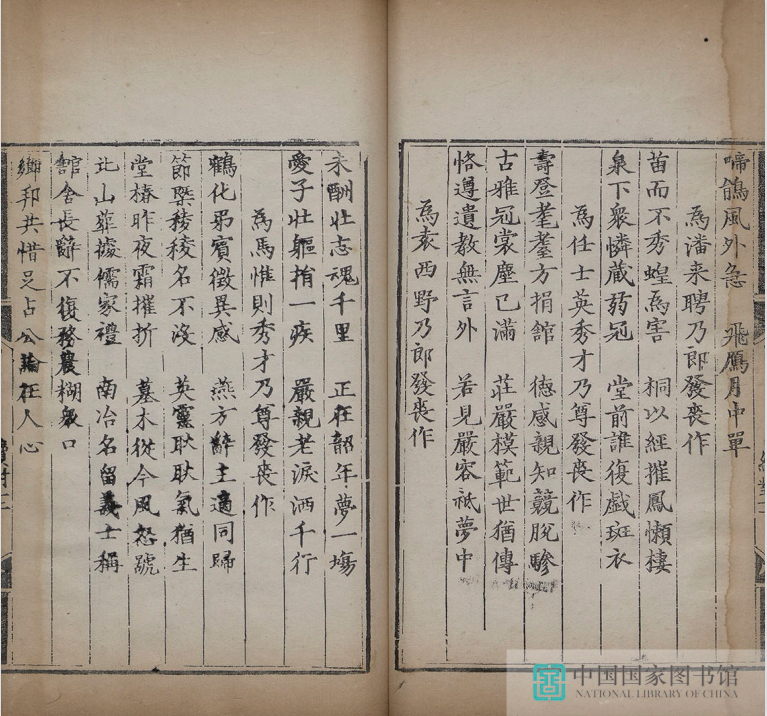 啼鵑風外急 飛鴈月中單
為潘来聘乃郎發喪作
苗而不秀蝗為害 桐以經摧鳳懶棲
泉下衆憐蔵弱冠 堂前誰復戯斑衣
為任士英秀才乃尊發喪作
壽登耄耋方捐館 德感親知競脫驂
古雅冠裳塵已滿 莊嚴模範世猶傳
恪遵遺教無言外 若見嚴容祗夢中
為袁西野乃郎發喪作
未酬壯志魂千里 正在韶年夢一塲
愛子壯軀捐一疾 嚴親老淚洒千行
為馬惟則秀才乃尊發喪作
鶴化弔賓徵異感 燕方辭主適同歸
節槩稜稜名不沒 英靈耿耿氣猶生
堂椿昨夜霜摧折 墓木從今風怒號
北山葬據儒家禮 南冶名留義士稱
舘舍長辭不復 務農糊衆口
鄉邦共惜足占公論在人心
中国国家图书馆
NATIONAL LIBRARY OF CHINA